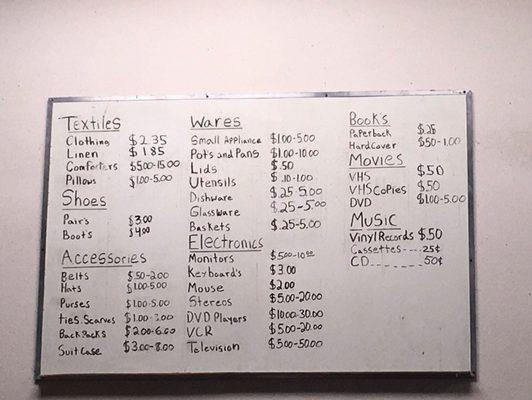 Textiles
Clothing $2.35
Linen $1.85
Comforters $5.00-15.00
Pillows $1.00-5.00
Shoes
Pairs $3.00
Boots $4.00
Accessories
Belts $.50-2.00
Hats $1.00-5.00
Purses $1.00-5.00
Ties.Scarves $1.00-3.00
BackPacks $2.00-6.00
Suit Case $3.00-8.00
Wares
Small Appliance $1.00-5.00
Pots and Pans $1.00-10.00
Lids $.50
Utensils $.10-1.00
Dishware $.25-5.00
Glassware $.25-5.00
Baskets $.25-5.00
Electronics
Monitors $5.00-10.00
Keyboard's $3.00
Mouse $2.00
Stereos $5.00-20.00
DVD Players $10.00-30.00
VCR $5.00-20.00
Television $5.00-50.00
Book's
Paperback $.25
HardCover $.50-1.00
Movies
VHS $.50
VHS Copies $.50
DVD $1.00-5.00
Music
Vinyl Records $.50
Cassettes---- 25¢
CD---------- 50¢